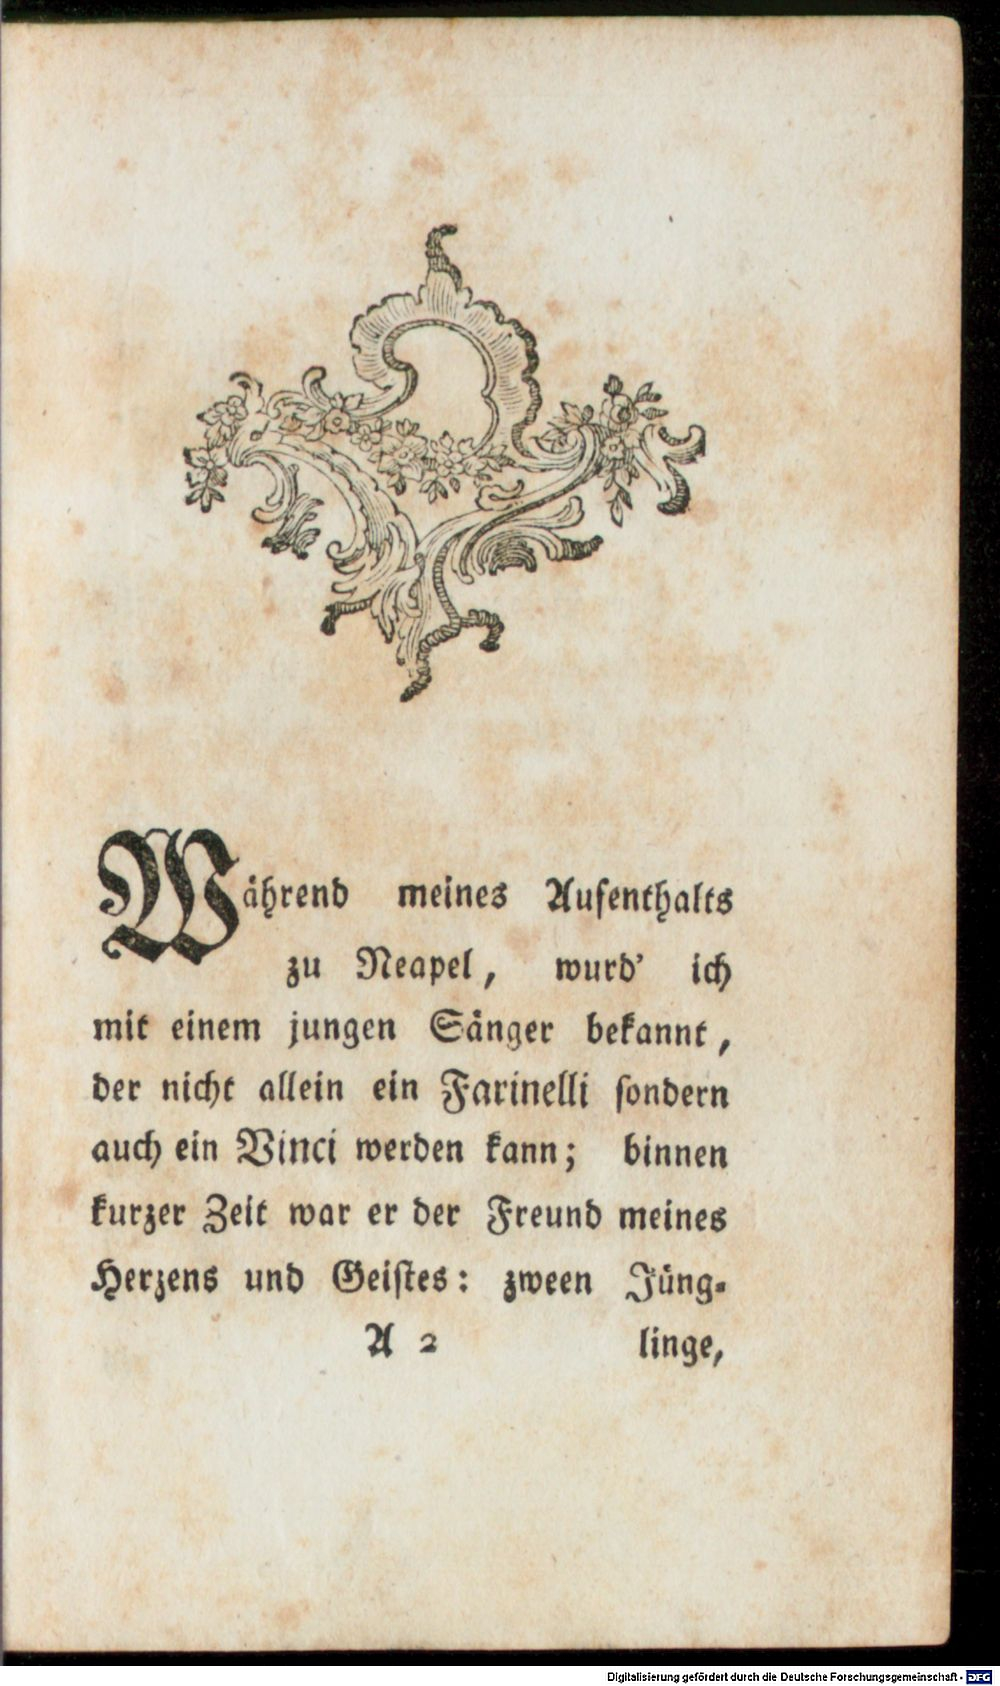 Während meines Aufenthalts
zu Neapel, wurd' ich
mit einem jungen Sänger bekannt,
der nicht allein ein Farinelli sondern
auch ein Vinci werden kann; binnen
kurzer Zeit war er der Freund meines
Herzens und Geistes: zween Jüng-
A 2 linge,
Digitalisierung gefördert durch die Deutsche Forschungsgemeinschaft - DFG